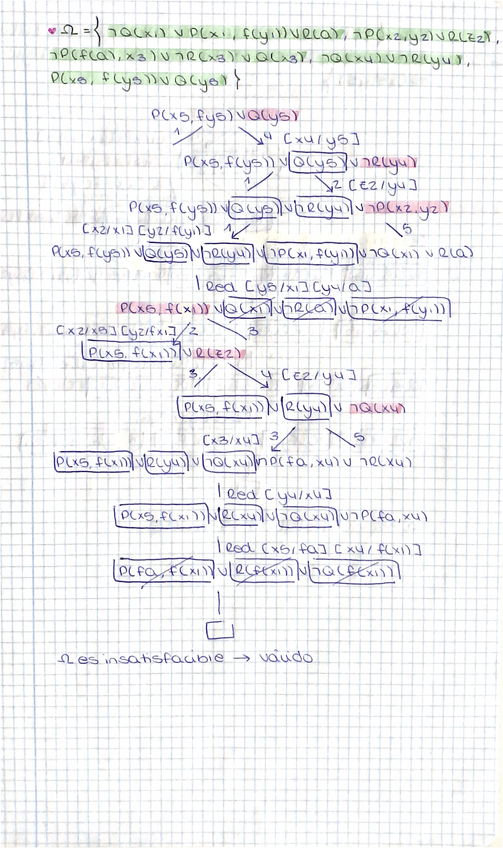 ♥ Ω = { ¬Q(x1) ∨ P(x1, f(y1)) ∨ R(a), ¬P(x2, y2) ∨ R(z2),
¬P(f(a), x3) ∨ ¬R(x3) ∨ Q(x3), ¬Q(x4) ∨ ¬R(y4),
P(x5, f(y5)) ∨ Q(y5) }
P(x5, f y5) ∨ Q(y5)
1 4 [x4/y5]
P(x5, f(y5)) ∨ Q(y5) ∨ ¬R(y4)
1 2 [z2/y4]
P(x5, f(y5)) ∨ Q(y5) ∨ ¬R(y4) ∨ ¬P(x2, y2)
[x2/x1] [y2/f(y1)] 1 5
P(x5, f(y5)) ∨ Q(y5) ∨ ¬R(y4) ∨ ¬P(x1, f(y1)) ∨ ¬Q(x1) ∨ R(a)
Red [y5/x1] [y4/a]
P(x5, f(x1)) ∨ Q(x1) ∨ ¬R(a) ∨ ¬P(x1, f(y1))
[x2/x5] [y2/fx1] 2 3
P(x5, f(x1)) ∨ R(z2)
3 4 [z2/y4]
P(x5, f(x1)) ∨ R(y4) ∨ ¬Q(x4)
[x3/x4] 3 5
P(x5, f(x1)) ∨ R(y4) ∨ ¬Q(x4) ¬P(fa, x4) ∨ ¬R(x4)
Red [y4/x4]
P(x5, f(x1)) ∨ R(x4) ∨ ¬Q(x4) ∨ ¬P(fa, x4)
Red [x5/fa] [x4/f(x1)]
P(fa, f(x1)) ∨ R(f(x1)) ∨ ¬Q(f(x1))
□
Ω es insatisfacible → válido